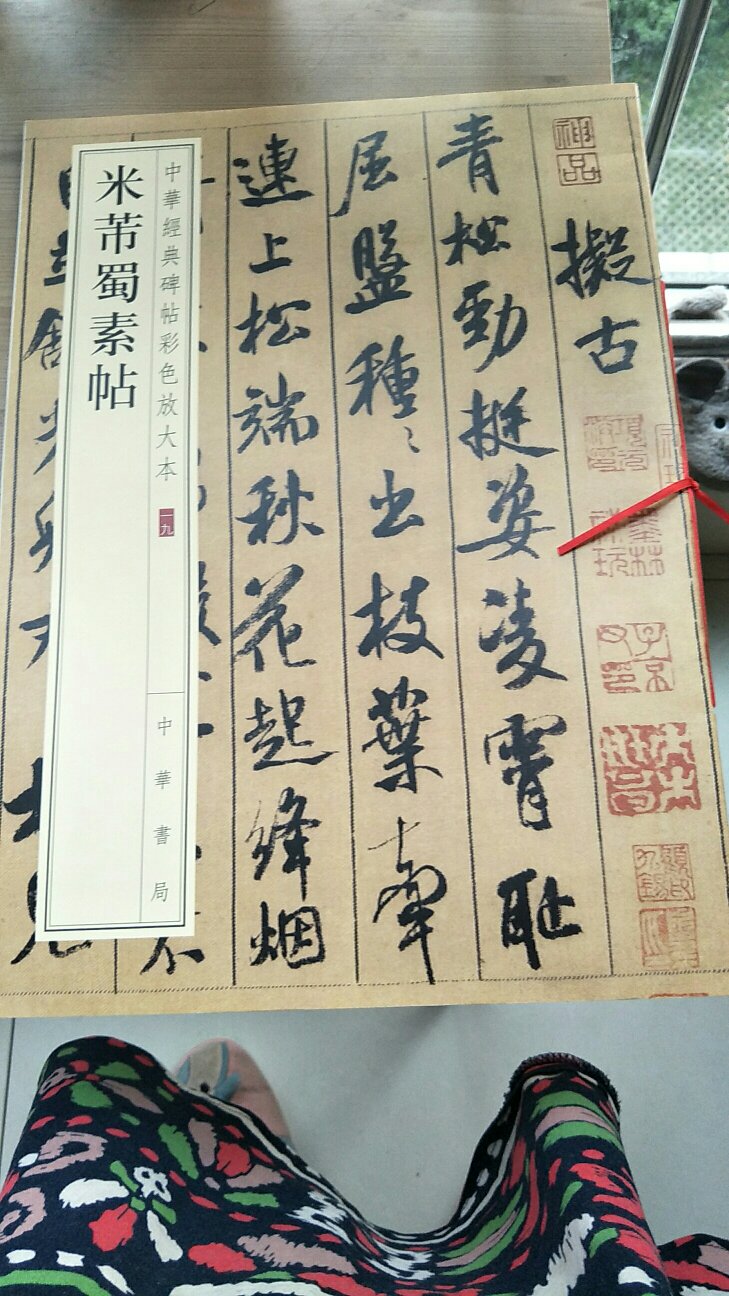 神品
擬古
青松勁挺姿凌霄耻
屈盤種〻出枝葉牽
連上松端秋花起絳烟
中華經典碑帖彩色放大本 一九
中華書局
米芾蜀素帖